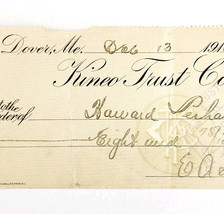 Dover, Me. Dec 13 191
Kineo Trust Co
to the
order of Howard
Eight and